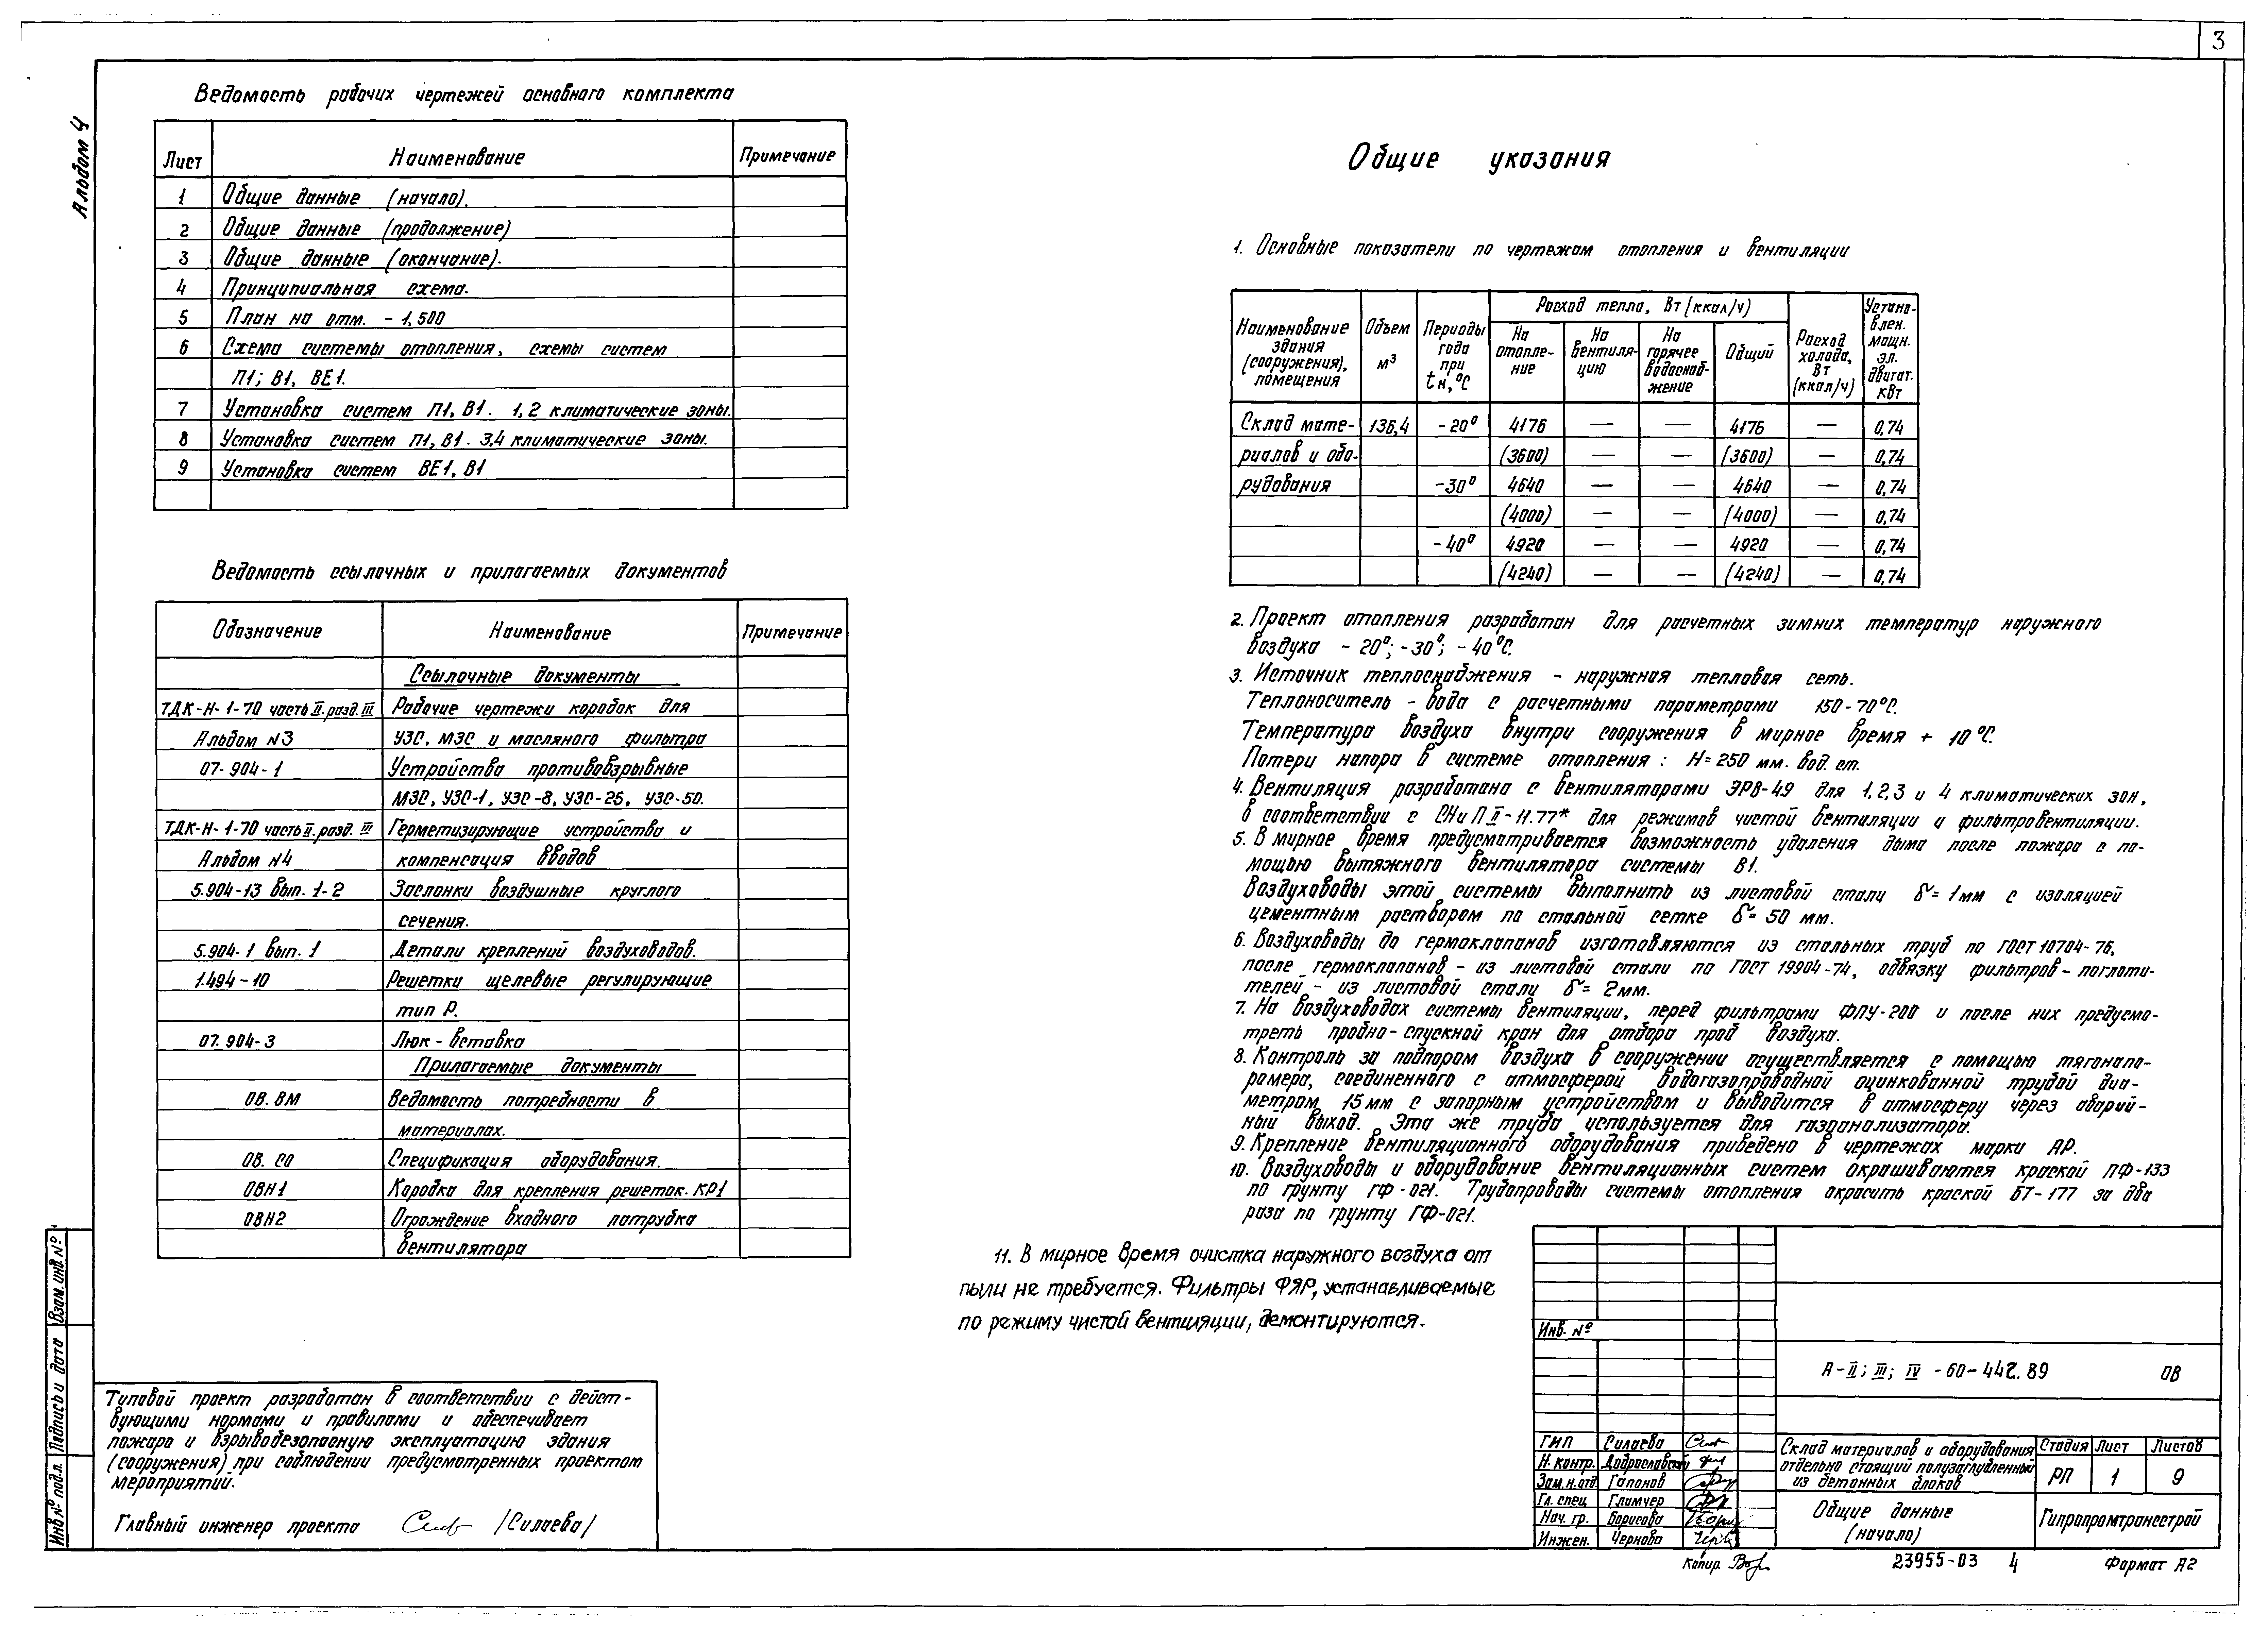 3
Альбом 4
Ведомость рабочих чертежей основного комплекта
Лист Наименование Примечание
1 Общие данные (начало).
2 Общие данные (продолжение)
3 Общие данные (окончание).
4 Принципиальная схема.
5 План на отм. - 1,500
6 Схема системы отопления, схемы систем
П1; В1, ВЕ1.
7 Установка систем П1, В1. 1,2 климатические зоны.
8 Установка систем П1, В1. 3,4 климатические зоны.
9 Установка систем ВЕ1, В1
Ведомость ссылочных и прилагаемых документов
Обозначение Наименование Примечание
Ссылочные документы
ТДК-Н-1-70 часть II. разд. III Рабочие чертежи коробок для
Альбом N3 УЗС, МЗС и масляного фильтра
07-904-1 Устройства противовзрывные
МЗС, УЗС-1, УЗС-8, УЗС-25, УЗС-50.
ТДК-Н-1-70 часть II. разд. III Герметизирующие устройства и
Альбом N4 компенсация вводов
5.904-13 вып. 1-2 Заслонки воздушные круглого
сечения.
5.904-1 вып. 1 Детали креплений воздуховодов.
1.494-10 Решетки щелевые регулирующие
тип Р.
07.904-3 Люк-вставка
Прилагаемые документы
ОВ. ВМ Ведомость потребности в
материалах.
ОВ. СО Спецификация оборудования.
ОВН1 Коробка для крепления решеток. КР1
ОВН2 Ограждение входного патрубка
вентилятора
Общие указания
1. Основные показатели по чертежам отопления и вентиляции
Наименование здания (сооружения), помещения Объем м³ Периоды года при tн,°С Расход тепла, Вт (ккал/ч) Расход холода, Вт (ккал/ч) Установлен. мощн. эл. двигат. кВт
На отопление На вентиляцию На горячее водоснабжение Общий
Склад мате- 136,4 -20° 4176 — — 4176 — 0,74
риалов и обо- (3600) — — (3600) — 0,74
рудования -30° 4640 — — 4640 — 0,74
(4000) — — (4000) — 0,74
-40° 4920 — — 4920 — 0,74
(4240) — — (4240) — 0,74
2. Проект отопления разработан для расчетных зимних температур наружного
воздуха - 20°; -30°; -40°С.
3. Источник теплоснабжения - наружная тепловая сеть.
Теплоноситель - вода с расчетными параметрами 150-70°С.
Температура воздуха внутри сооружения в мирное время + 10°С.
Потери напора в системе отопления: Н=250 мм. вод. ст.
4. Вентиляция разработана с вентиляторами ЭРВ-49 для 1,2,3 и 4 климатических зон,
в соответствии с СНиП II-11.77* для режимов чистой вентиляции и фильтровентиляции.
5. В мирное время предусматривается возможность удаления дыма после пожара с по-
мощью вытяжного вентилятора системы В1.
Воздуховоды этой системы выполнить из листовой стали δ=1мм с изоляцией
цементным раствором по стальной сетке δ=50 мм.
6. Воздуховоды до гермоклапанов изготовляются из стальных труб по ГОСТ 10704-76,
после гермоклапанов - из листовой стали по ГОСТ 19904-74, обвязку фильтров-поглоти-
телей - из листовой стали δ=2мм.
7. На воздуховодах системы вентиляции, перед фильтрами ФПУ-200 и после них предусмо-
треть пробно-спускной кран для отбора проб воздуха.
8. Контроль за подпором воздуха в сооружении осуществляется с помощью тягонапо-
ромера, соединенного с атмосферой водогазопроводной оцинкованной трубой диа-
метром 15мм с запорным устройством и выводится в атмосферу через аварий-
ный выход. Эта же труба используется для газоанализатора.
9. Крепление вентиляционного оборудования приведено в чертежах марки АР.
10. Воздуховоды и оборудование вентиляционных систем окрашиваются краской ПФ-133
по грунту ГФ-021. Трубопроводы системы отопления окрасить краской БТ-177 за два
раза по грунту ГФ-021.
11. В мирное время очистка наружного воздуха от
пыли не требуется. Фильтры ФЯР, устанавливаемые
по режиму чистой вентиляции, демонтируются.
Типовой проект разработан в соответствии с дейст-
вующими нормами и правилами и обеспечивает
пожаро и взрывобезопасную эксплуатацию здания
(сооружения) при соблюдении предусмотренных проектом
мероприятий.
Главный инженер проекта /Силаева/
Взам. инв. №
Подпись и дата
Инв № подл.
Инв. №
А-II; III; IV -60-442.89 ОВ
ГИП Силаева
Н. контр. Доброславский
Зам. н. отд. Гапонов
Гл. спец Глимчер
Нач. гр. Борисова
Инжен. Чернова
Склад материалов и оборудования
отдельно стоящий полузаглубленный
из бетонных блоков
Стадия Лист Листов
РП 1 9
Общие данные
(начало)
Гипропромтрансстрой
Копир.
23955-03 4
Формат А2